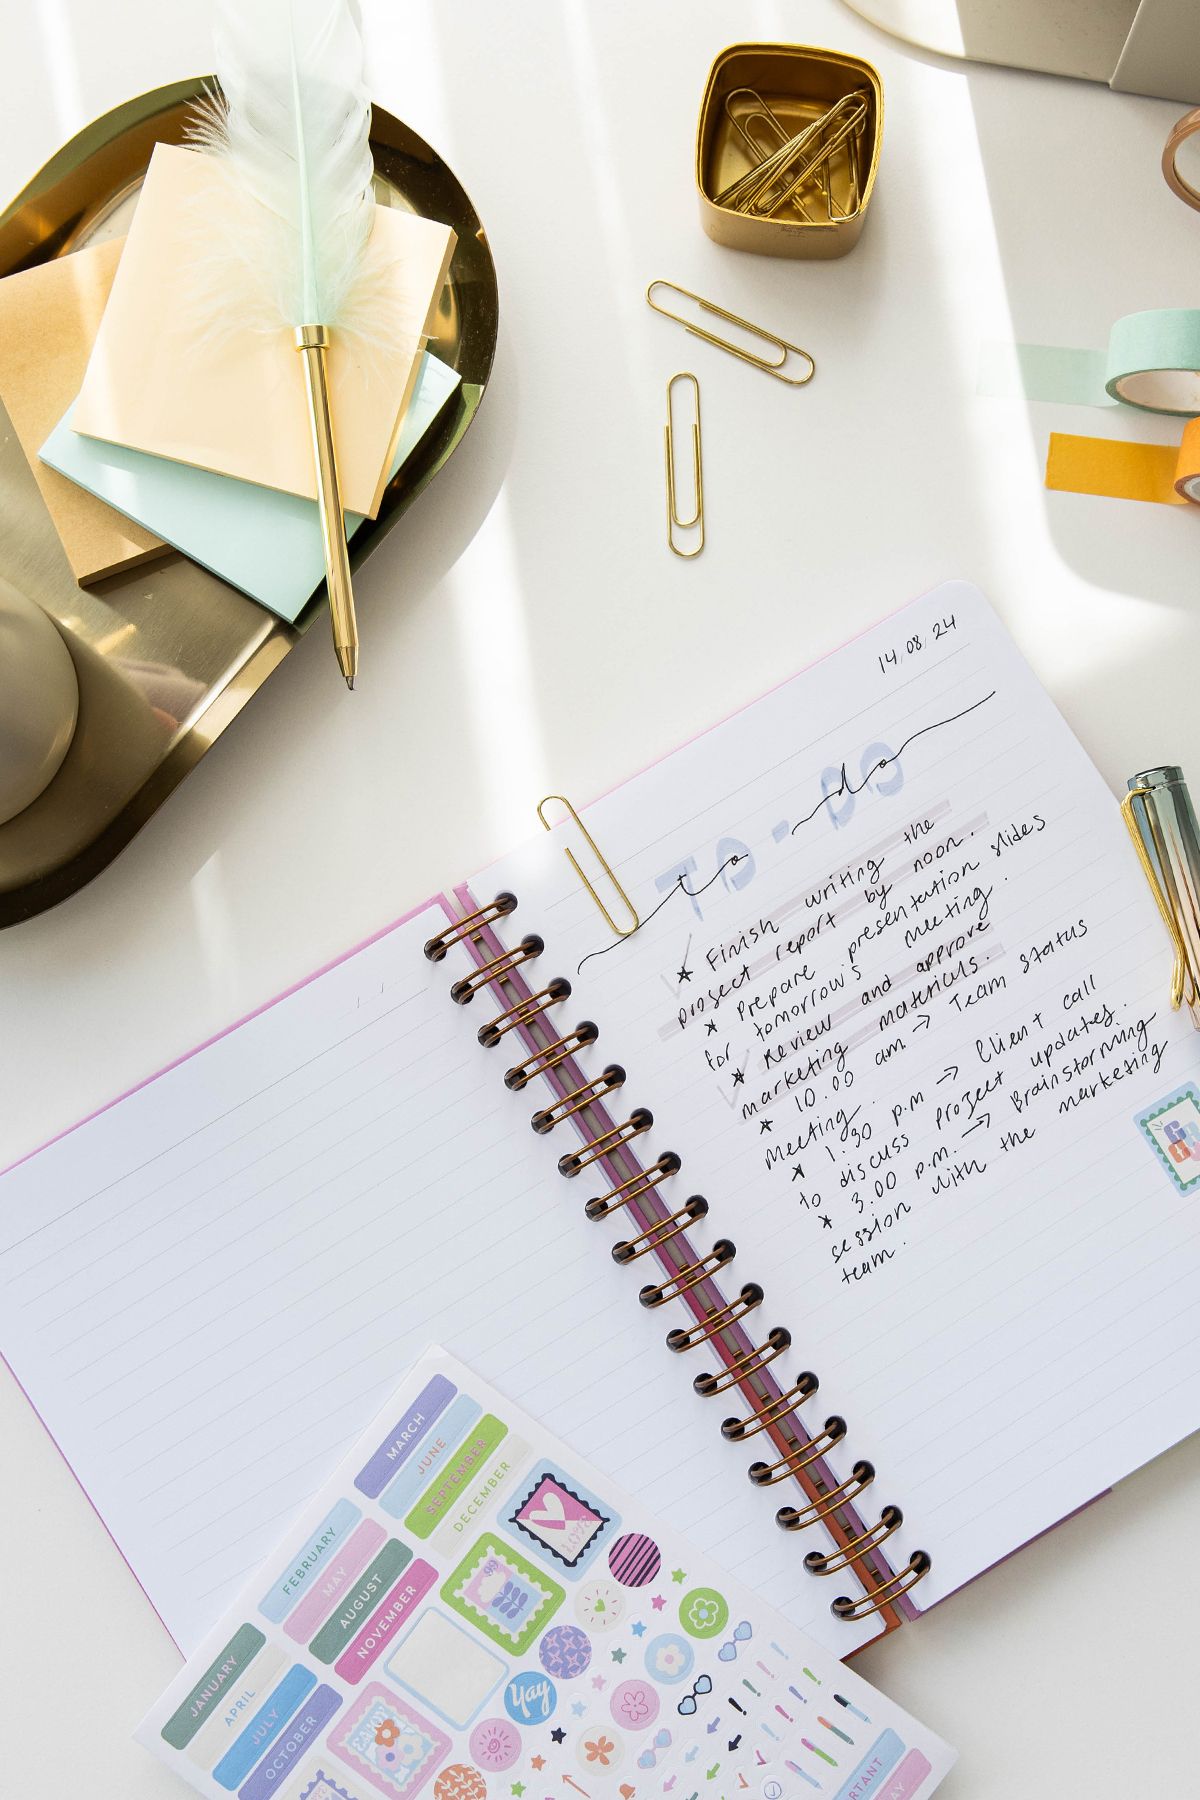 14.08.24
to-do
TO-DO
* Finish writing the
project report by noon.
* Prepare presentation slides
for tomorrow's meeting.
* Review and approve
marketing materials.
* 10.00 am → Team status
meeting.
* 1.30 p.m → Client call
to discuss project updates.
* 3.00 p.m. → Brainstorming
session with the marketing
team.
MARCH
JUNE
SEPTEMBER
DECEMBER
FEBRUARY
MAY
AUGUST
NOVEMBER
JANUARY
APRIL
JULY
OCTOBER
LOVE
99
Yay
ENJOY